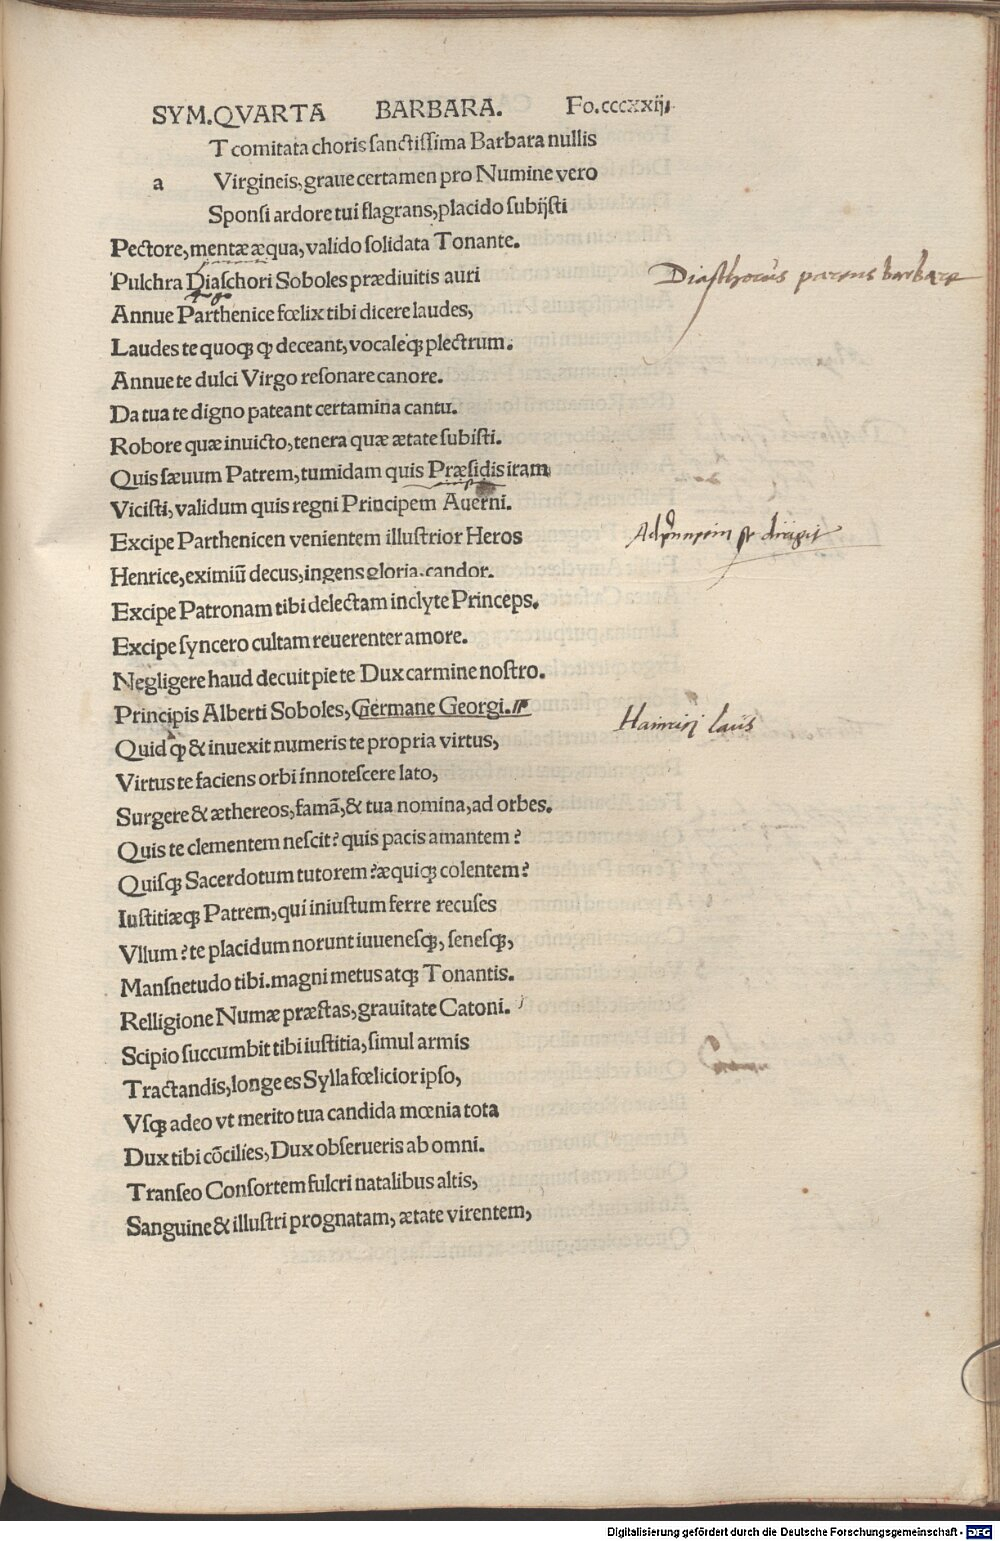 SYM.QVARTA BARBARA. Fo.cccxxij.
T comitata choris sanctissima Barbara nullis
a Virgineis, graue certamen pro Numine vero
Sponsi ardore tui flagrans, placido subijsti
Pectore, mentæ æqua, valido solidata Tonante.
Pulchra Diaschori Soboles prædiuitis auri
Diasthorus parens barbare
Annue Parthenice fœlix tibi dicere laudes,
Laudes te quoqꝫ ꝙ deceant, vocaleqꝫ plectrum.
Annue te dulci Virgo resonare canore.
Da tua te digno pateant certamina cantu.
Robore quæ inuicto, tenera quæ ætate subisti.
Quis sæuum Patrem, tumidam quis Præsidis iram
Vicisti, validum quis regni Principem Auerni.
Excipe Parthenicen venientem illustrior Heros
Ad principem se dirigit
Henrice, eximiũ decus, ingens gloria. candor.
Excipe Patronam tibi delectam inclyte Princeps.
Excipe syncero cultam reuerenter amore.
Negligere haud decuit pie te Dux carmine nostro.
Principis Alberti Soboles, Germane Georgi.
Hainrici laus
Quid ꝙ & inuexit numeris te propria virtus,
Virtus te faciens orbi innotescere lato,
Surgere & æthereos, famã, & tua nomina, ad orbes.
Quis te clementem nescit? quis pacis amantem?
Quisqꝫ Sacerdotum tutorem? æquiqꝫ colentem?
Iustitiæqꝫ Patrem, qui iniustum ferre recuses
Vllum? te placidum norunt iuuenesqꝫ, senesqꝫ,
Mansnetudo tibi. magni metus atqꝫ Tonantis.
Relligione Numæ præstas, grauitate Catoni.
Scipio succumbit tibi iustitia, simul armis
Tractandis, longe es Sylla fœlicior ipso,
Vsqꝫ adeo vt merito tua candida mœnia tota
Dux tibi cõcilies, Dux obserueris ab omni.
Transeo Consortem fulcri natalibus altis,
Sanguine & illustri prognatam, ætate virentem,
Digitalisierung gefördert durch die Deutsche Forschungsgemeinschaft - DFG